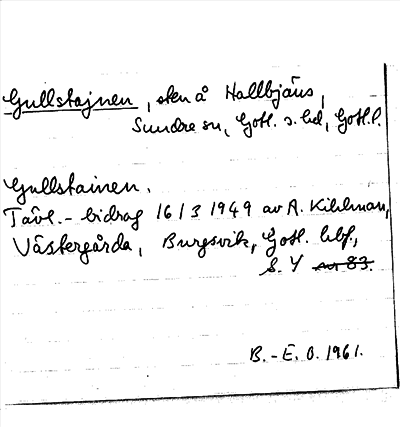 Gullstajnen, sten å Hallbjäns,
Sundre sn, Gotl. s. hd, Gotl. l.
Gullstainen.
Tävl.- bidrag 16/3 1949 av A. Kihlman,
Västergårda, Burgsvik, Gotl. lbf,
S. 4
B.-E. O. 1961.